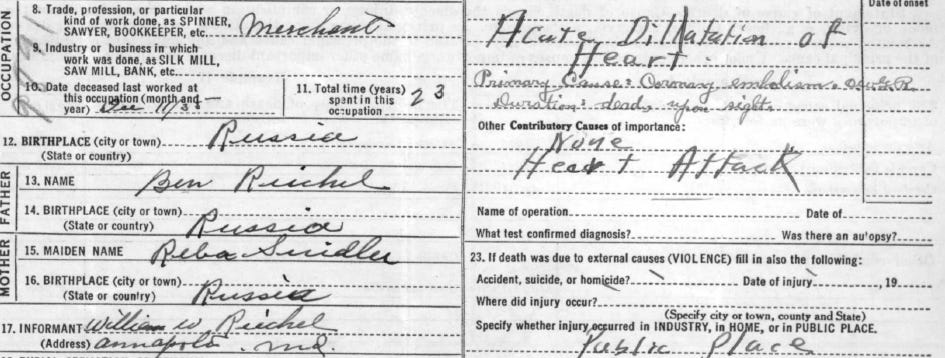 OCCUPATION
8. Trade, profession, or particular
kind of work done, as SPINNER,
SAWYER, BOOKKEEPER, etc. Merchant
9. Industry or business in which
work was done, as SILK MILL,
SAW MILL, BANK, etc.
10. Date deceased last worked at
this occupation (month and
year) Dec
11. Total time (years)
spent in this
occupation 23
12. BIRTHPLACE (city or town) Russia
(State or country)
FATHER
13. NAME Ben Reichel
14. BIRTHPLACE (city or town)
(State or country) Russia
MOTHER
15. MAIDEN NAME Reba
16. BIRTHPLACE (city or town)
(State or country) Russia
17. INFORMANT William W Reichel
(Address) Annapolis Md.
Date of onset
Acute Dillatation of
Heart
Primary Cause: Coronary embolism
Duration: dead upon sight
Other Contributory Causes of importance:
None
Heart Attack
Name of operation Date of
What test confirmed diagnosis? Was there an autopsy?
23. If death was due to external causes (VIOLENCE) fill in also the following:
Accident, suicide, or homicide? Date of injury , 19
Where did injury occur?
(Specify city or town, county and State)
Specify whether injury occurred in INDUSTRY, in HOME, or in PUBLIC PLACE.
Public Place